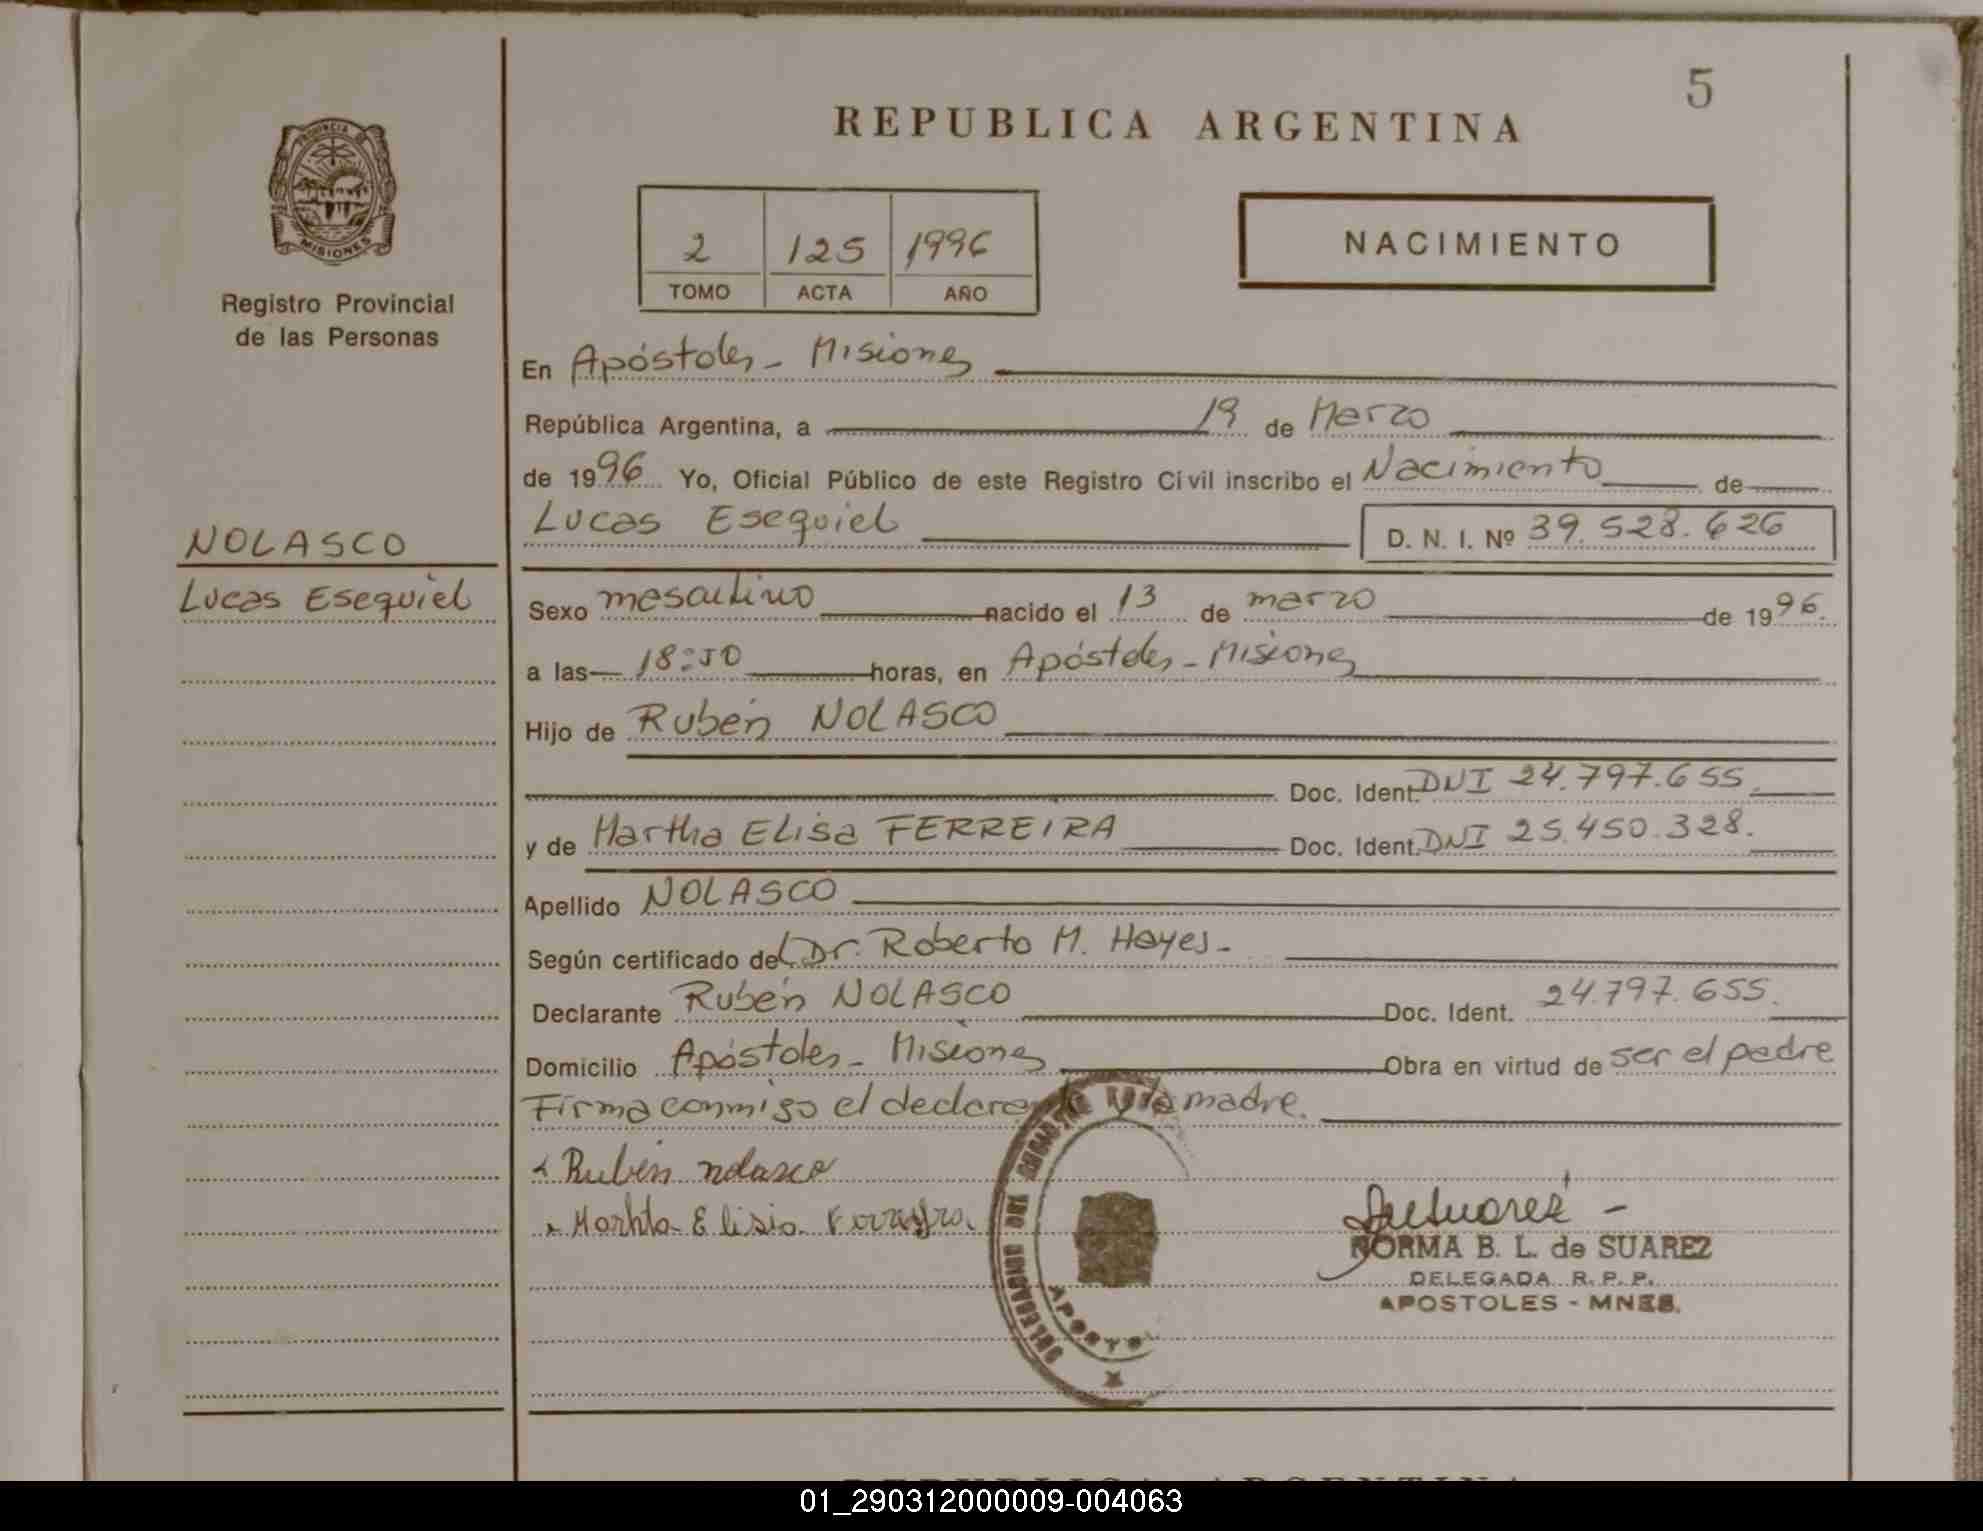 5
REPUBLICA ARGENTINA
PROVINCIA DE
MISIONES
Registro Provincial
de las Personas
2 125 1996
TOMO ACTA AÑO
NACIMIENTO
En Apóstoles - Misiones
República Argentina, a 19 de Marzo
de 1996 Yo, Oficial Público de este Registro Civil inscribo el Nacimiento de
NOLASCO
Lucas Esequiel
Lucas Esequiel D. N. I. Nº 39.528.626
Sexo masculino nacido el 13 de marzo de 1996.
a las 18:50 horas, en Apóstoles - Misiones
Hijo de Rubén NOLASCO
Doc. Ident. DNI 24.797.655.
y de Martha Elisa FERREIRA Doc. Ident. DNI 25.450.328.
Apellido NOLASCO
Según certificado del Dr. Roberto M. Hayes -
Declarante Rubén NOLASCO Doc. Ident. 24.797.655.
Domicilio Apóstoles - Misiones Obra en virtud de ser el padre
Firma conmigo el declarante y la madre.
Rubén nolasco
NORMA B. L. de SUAREZ
DELEGADA R. P. P.
APOSTOLES - MNES.
REPUBLICA ARGENTINA
01_290312000009-004063